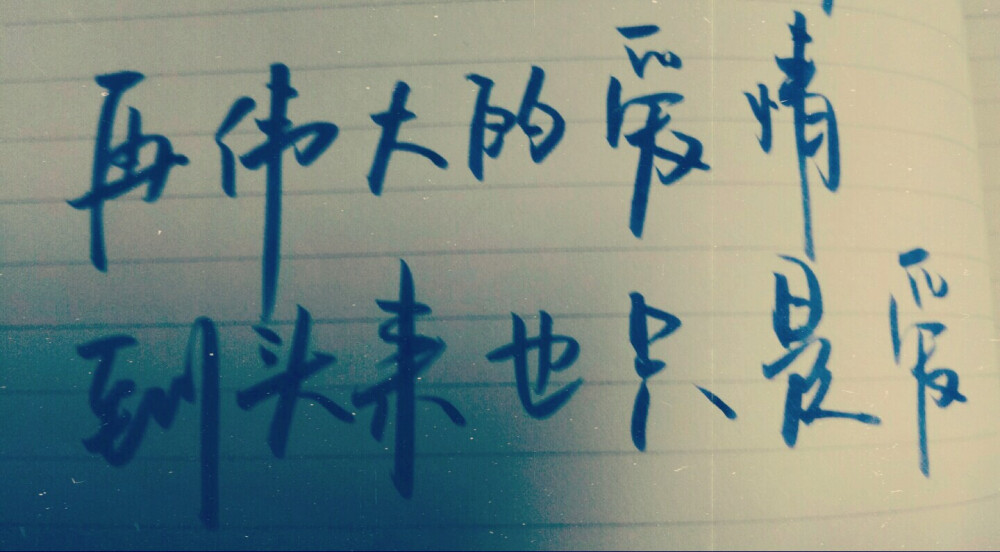 再伟大的爱情
到头来也只是爱